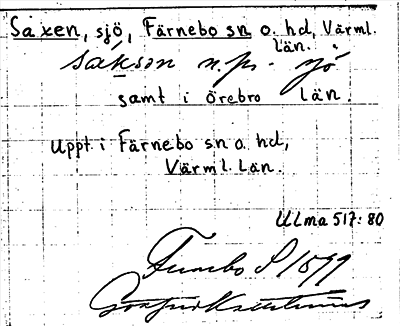 Saxen, sjö, Färnebo sn o. hd, Värml.
län.
sákson n.pr. sjö
samt i Örebro län.
Uppt. i Färnebo sn o. hd,
Värml. Län.
ULma 517: 80
Färnebo S 1599
Gottfrid